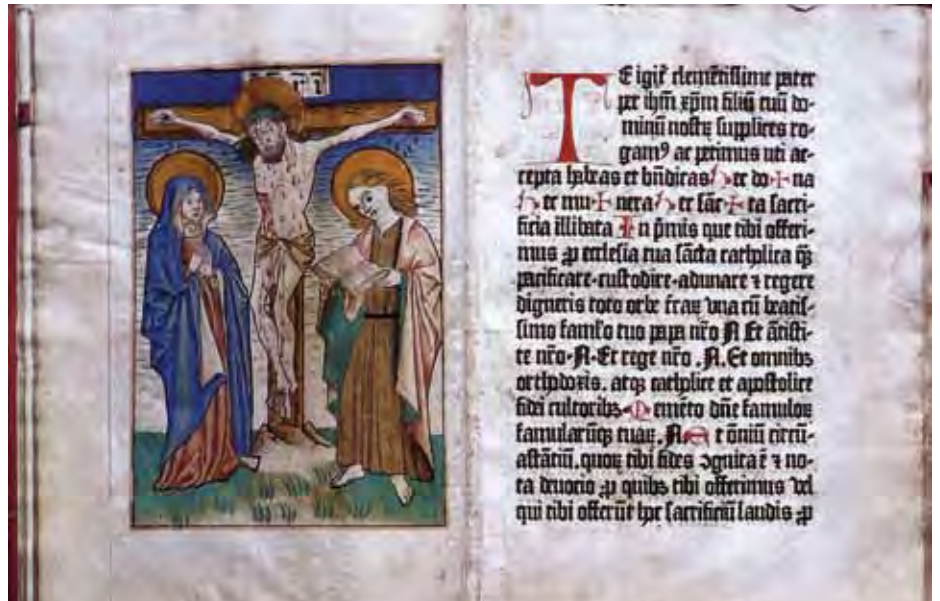 TE igit̃ clemẽtissime pater
per ihm̃ xp̃m filiũ tuũ do-
minũ nostrꝝ supplices ro-
gamꝰ ac petimus uti ac-
cepta habeas et bñdicas hec do ✝ na
hec mu ✝ nera hec sãc ✝ ta sacri-
ficia illibata In p̃mis que tibi offeri-
mus ꝓ ecclesia tua sãcta catholica q̃ꝫ
pacificare·custodire·adunare ⁊ regere
digneris toto orbe t̃raꝝ vna cũ beatis-
simo famlo tuo papa nr̃o N Et ãtisti-
te nr̃o·N·Et rege nr̃o .N. Et omnibꝫ
orthodoxis. atqꝫ catholice et apostolice
fidei cultoribꝫ· Memẽto dñe famuloꝝ
famularũqꝫ tuaꝝ .N. Et õniũ circũ-
astãtiũ. quoꝝ tibi fides ꝯgnita ẽ ⁊ no-
ta deuotio ꝓ quibꝫ tibi offerimus vel
qui tibi offerũt hoc sacrificiũ laudis ꝓ